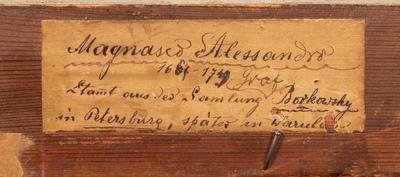 Magnasco Alessandro
1681-1749 Graf
Stamt aus der Samlung Borkovsky
in Petersburg, später in Warschau